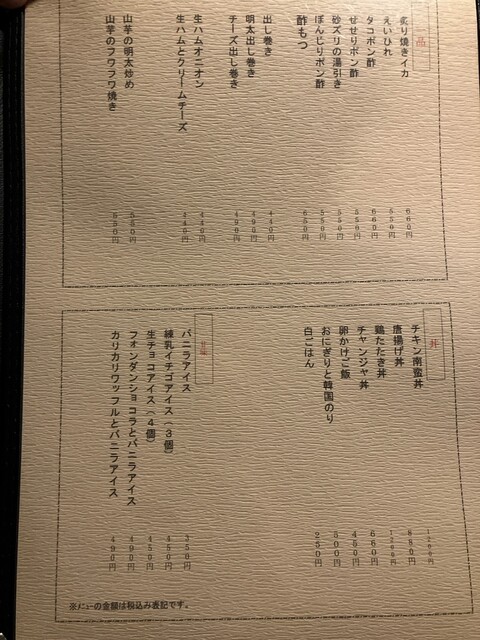 品
炙り焼きイカ 660円
えいひれ 550円
タコポン酢 660円
せせりポン酢 550円
砂ズリの湯引き 550円
ぼんじりポン酢 550円
酢もつ 650円
出し巻き 440円
明太出し巻き 490円
チーズ出し巻き 490円
生ハムオニオン 440円
生ハムとクリームチーズ 440円
山芋の明太炒め 550円
山芋のフワフワ焼き 550円
丼
チキン南蛮丼
唐揚げ丼 880円
鶏たたき丼
チャンジャ丼 660円
卵かけご飯 450円
おにぎりと韓国のり
白ごはん 250円
バニラアイス 350円
練乳イチゴアイス（3個） 450円
生チョコアイス（4個） 450円
フォンダンショコラとバニラアイス 490円
カリカリワッフルとバニラアイス 490円
※メニューの金額は税込み表記です。